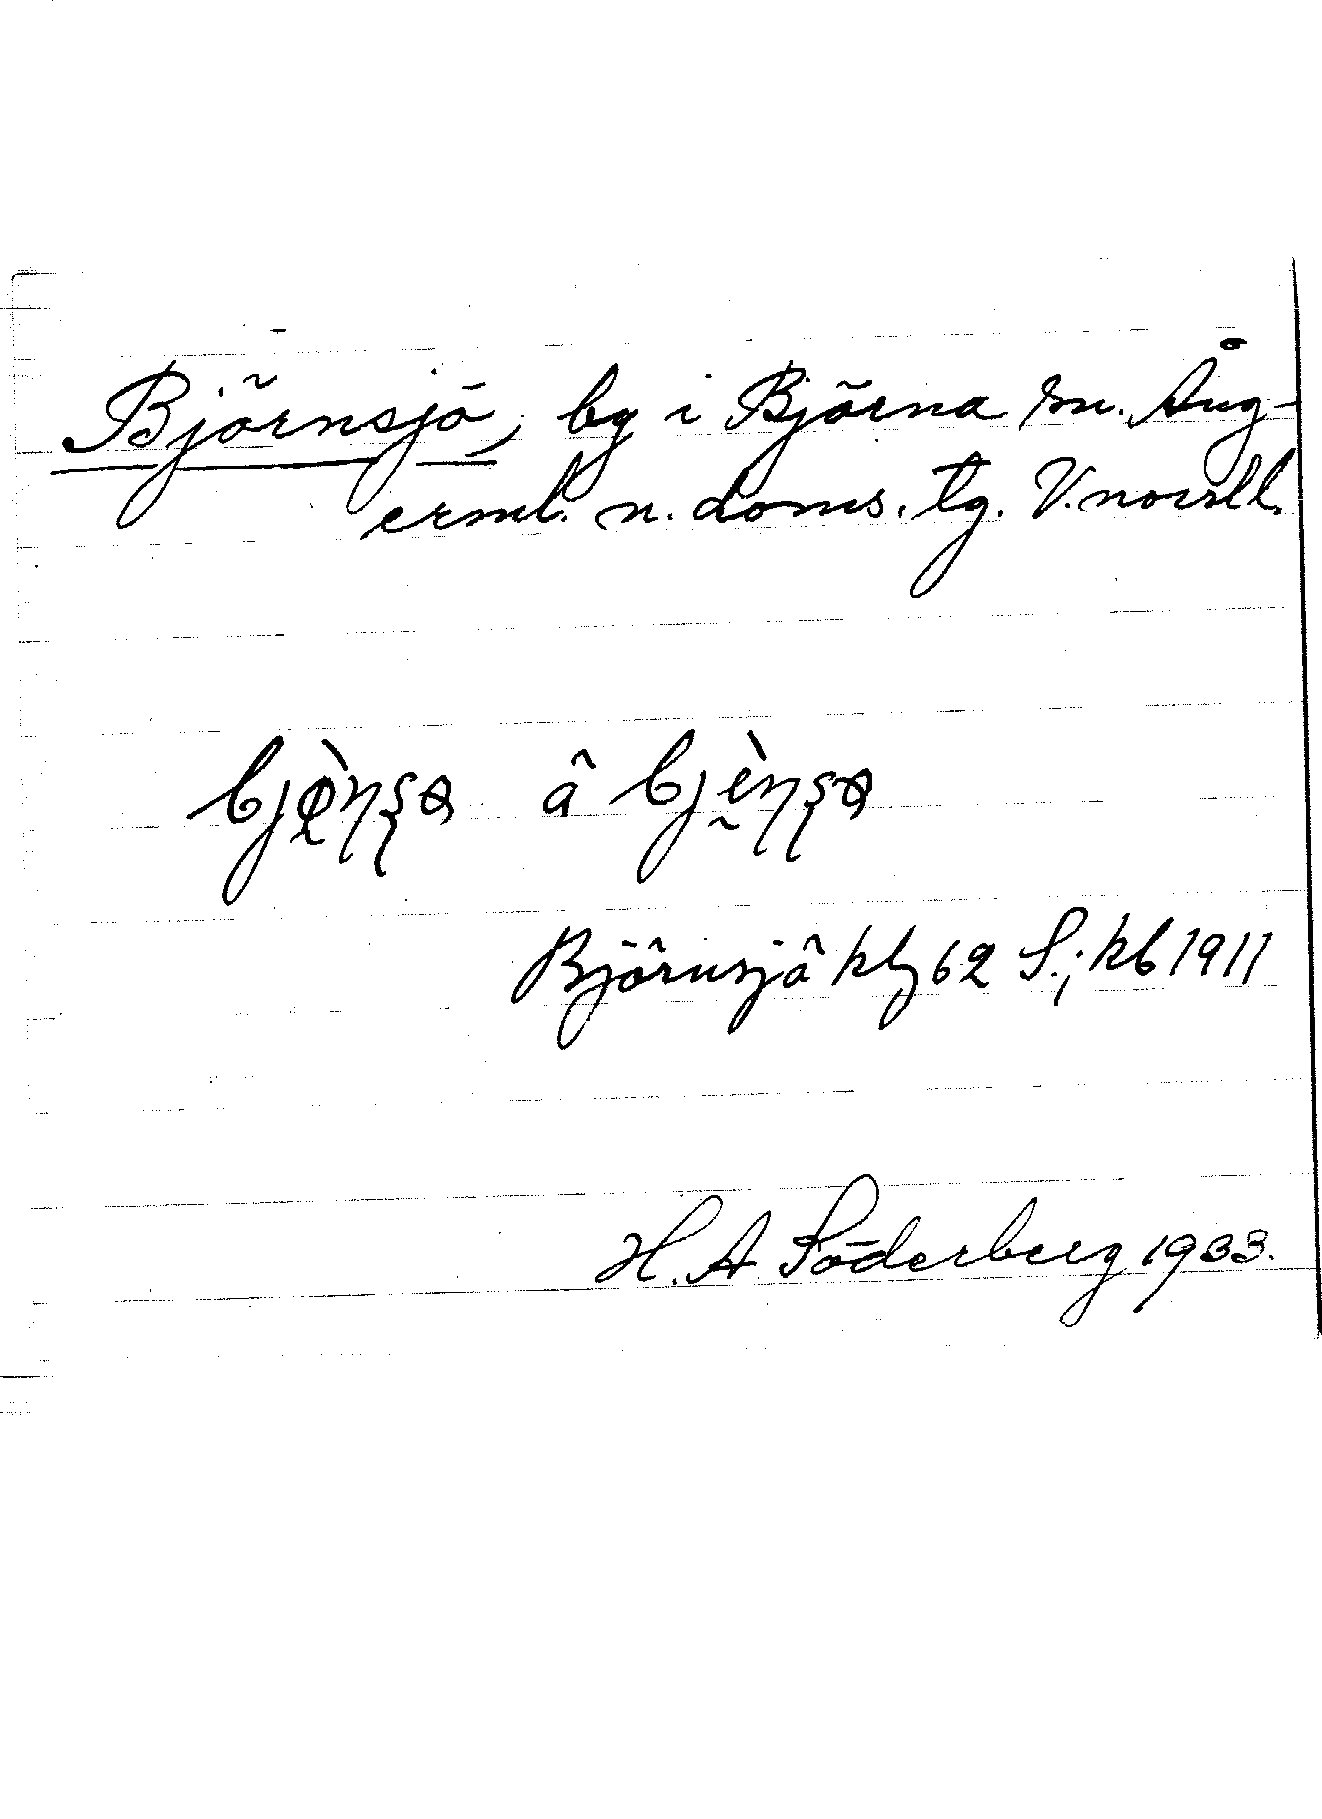 Björnsjö, by i Björna sn. Ång-
erml. n. doms. tg. V. norrl.
bjø̀ṇṣø å bjèṇṣø
Björnsjö kb 62 S.; kb 1911
H. A Söderberg 1933.